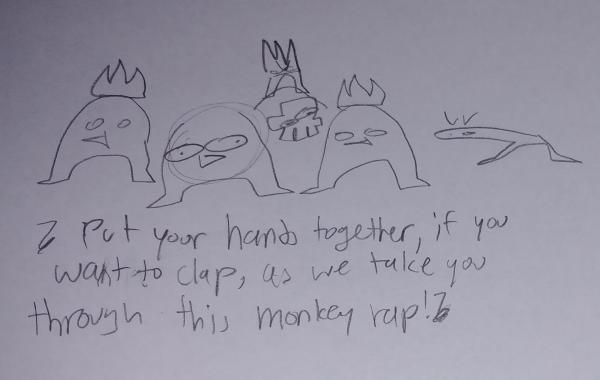 Put your hands together, if you
want to clap, as we take you
through this monkey rap!